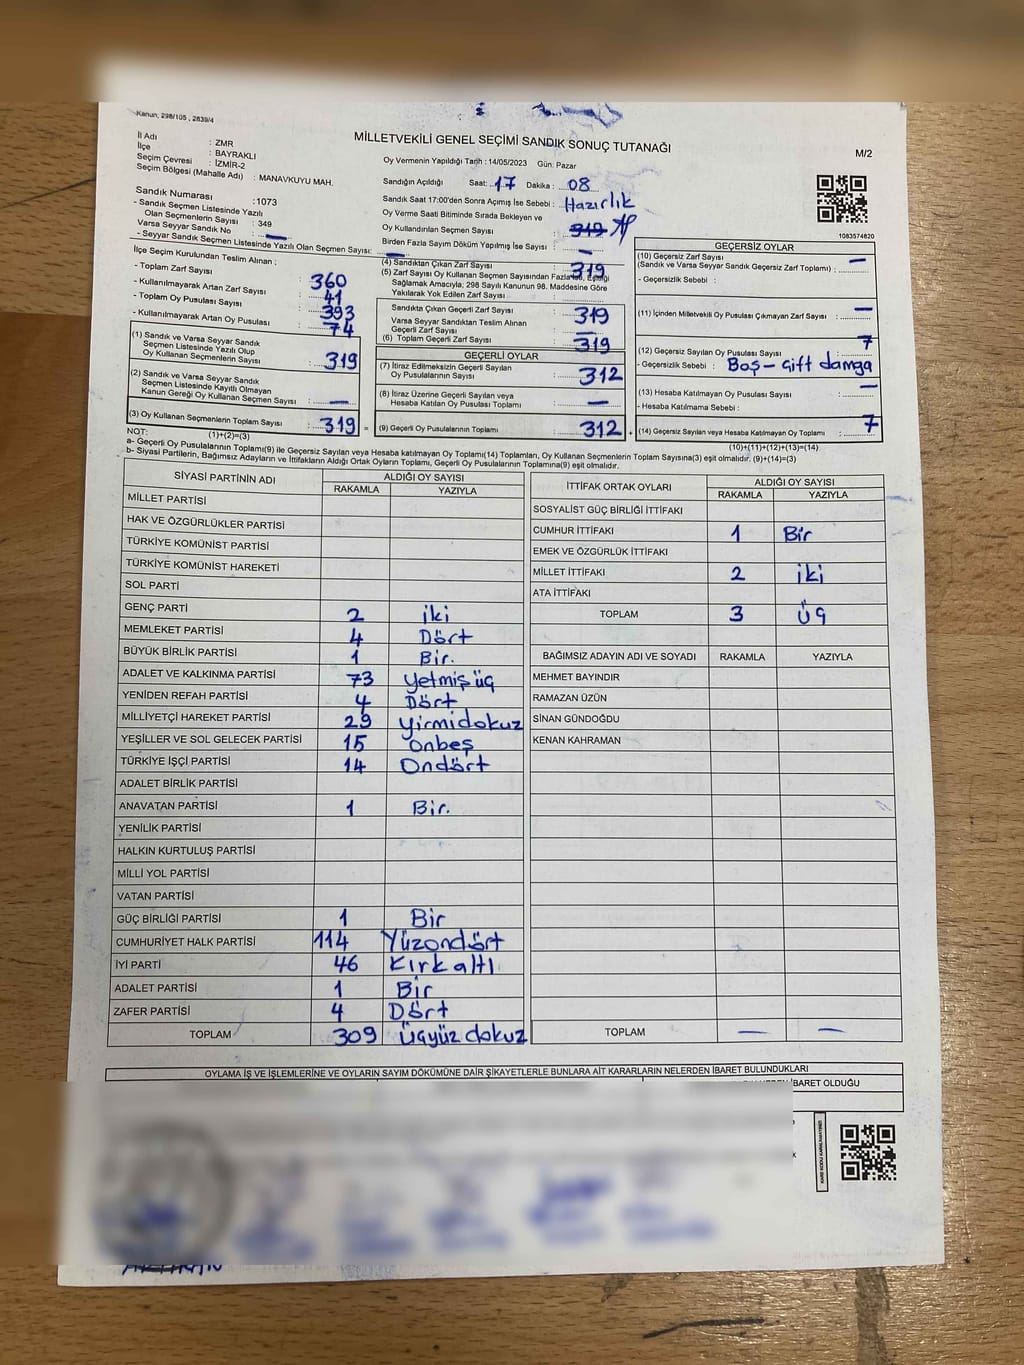 Kanun, 298/105 , 2839/4
MİLLETVEKİLİ GENEL SEÇİMİ SANDIK SONUÇ TUTANAĞI
M/2
İl Adı : ZMR
İlçe : BAYRAKLI
Seçim Çevresi : İZMİR-2
Seçim Bölgesi (Mahalle Adı) : MANAVKUYU MAH.
Sandık Numarası :1073
- Sandık Seçmen Listesinde Yazılı
Olan Seçmenlerin Sayısı : 349
Varsa Seyyar Sandık No : —
- Seyyar Sandık Seçmen Listesinde Yazılı Olan Seçmen Sayısı: —
Oy Vermenin Yapıldığı Tarih : 14/05/2023 Gün: Pazar
Sandığın Açıldığı Saat: 17 Dakika : 08
Sandık Saat 17:00'den Sonra Açılmış İse Sebebi : Hazırlık
Oy Verme Saati Bitiminde Sırada Bekleyen ve
Oy Kullandırılan Seçmen Sayısı : 319
Birden Fazla Sayım Döküm Yapılmış İse Sayısı : —
1083574820
İlçe Seçim Kurulundan Teslim Alınan ;
- Toplam Zarf Sayısı : 360
- Kullanılmayarak Artan Zarf Sayısı : 41
- Toplam Oy Pusulası Sayısı : 393
- Kullanılmayarak Artan Oy Pusulası : 74
(1) Sandık ve Varsa Seyyar Sandık
Seçmen Listesinde Yazılı Olup
Oy Kullanan Seçmenlerin Sayısı : 319
(2) Sandık ve Varsa Seyyar Sandık
Seçmen Listesinde Kayıtlı Olmayan
Kanun Gereği Oy Kullanan Seçmen Sayısı : —
(3) Oy Kullanan Seçmenlerin Toplam Sayısı : 319 =
(4) Sandıktan Çıkan Zarf Sayısı : 319
(5) Zarf Sayısı Oy Kullanan Seçmen Sayısından Fazla ise, Eşitliği
Sağlamak Amacıyla; 298 Sayılı Kanunun 98. Maddesine Göre
Yakılarak Yok Edilen Zarf Sayısı :
Sandıkta Çıkan Geçerli Zarf Sayısı : 319
Varsa Seyyar Sandıktan Teslim Alınan
Geçerli Zarf Sayısı : —
(6) Toplam Geçerli Zarf Sayısı : 319
GEÇERLİ OYLAR
(7) İtiraz Edilmeksizin Geçerli Sayılan
Oy Pusulalarının Sayısı : 312
(8) İtiraz Üzerine Geçerli Sayılan veya
Hesaba Katılan Oy Pusulaları Toplamı : —
(9) Geçerli Oy Pusulalarının Toplamı : 312 +
GEÇERSİZ OYLAR
(10) Geçersiz Zarf Sayısı
(Sandık ve Varsa Seyyar Sandık Geçersiz Zarf Toplamı) : —
- Geçersizlik Sebebi :
(11) İçinden Milletvekili Oy Pusulası Çıkmayan Zarf Sayısı : —
(12) Geçersiz Sayılan Oy Pusulası Sayısı : 7
- Geçersizlik Sebebi : Boş - çift damga
(13) Hesaba Katılmayan Oy Pusulası Sayısı : —
- Hesaba Katılmama Sebebi :
(14) Geçersiz Sayılan veya Hesaba Katılmayan Oy Toplamı : 7
NOT: (1)+(2)=(3)
(10)+(11)+(12)+(13)=(14)
a- Geçerli Oy Pusulalarının Toplamı(9) ile Geçersiz Sayılan veya Hesaba katılmayan Oy Toplamı(14) Toplamları, Oy Kullanan Seçmenlerin Toplam Sayısına(3) eşit olmalıdır. (9)+(14)=(3)
b- Siyasi Partilerin, Bağımsız Adayların ve İttifakların Aldığı Ortak Oyların Toplamı, Geçerli Oy Pusulalarının Toplamına(9) eşit olmalıdır.
SİYASİ PARTİNİN ADI ALDIĞI OY SAYISI
RAKAMLA YAZIYLA
MİLLET PARTİSİ
HAK VE ÖZGÜRLÜKLER PARTİSİ
TÜRKİYE KOMÜNİST PARTİSİ
TÜRKİYE KOMÜNİST HAREKETİ
SOL PARTİ
GENÇ PARTİ 2 iki
MEMLEKET PARTİSİ 4 Dört
BÜYÜK BİRLİK PARTİSİ 1 Bir.
ADALET VE KALKINMA PARTİSİ 73 Yetmiş üç
YENİDEN REFAH PARTİSİ 4 Dört
MİLLİYETÇİ HAREKET PARTİSİ 29 Yirmidokuz
YEŞİLLER VE SOL GELECEK PARTİSİ 15 Onbeş
TÜRKİYE İŞÇİ PARTİSİ 14 Ondört
ADALET BİRLİK PARTİSİ
ANAVATAN PARTİSİ 1 Bir.
YENİLİK PARTİSİ
HALKIN KURTULUŞ PARTİSİ
MİLLİ YOL PARTİSİ
VATAN PARTİSİ
GÜÇ BİRLİĞİ PARTİSİ 1 Bir
CUMHURİYET HALK PARTİSİ 114 Yüzondört
İYİ PARTİ 46 Kırkaltı
ADALET PARTİSİ 1 Bir
ZAFER PARTİSİ 4 Dört
TOPLAM 309 üçyüz dokuz
İTTİFAK ORTAK OYLARI ALDIĞI OY SAYISI
RAKAMLA YAZIYLA
SOSYALİST GÜÇ BİRLİĞİ İTTİFAKI
CUMHUR İTTİFAKI 1 Bir
EMEK VE ÖZGÜRLÜK İTTİFAKI
MİLLET İTTİFAKI 2 iki
ATA İTTİFAKI
TOPLAM 3 üç
BAĞIMSIZ ADAYIN ADI VE SOYADI RAKAMLA YAZIYLA
MEHMET BAYINDIR
RAMAZAN ÜZÜN
SİNAN GÜNDOĞDU
KENAN KAHRAMAN
TOPLAM — —
OYLAMA İŞ VE İŞLEMLERİNE VE OYLARIN SAYIM DÖKÜMÜNE DAİR ŞİKAYETLERLE BUNLARA AİT KARARLARIN NELERDEN İBARET BULUNDUKLARI
İBARET OLDUĞU